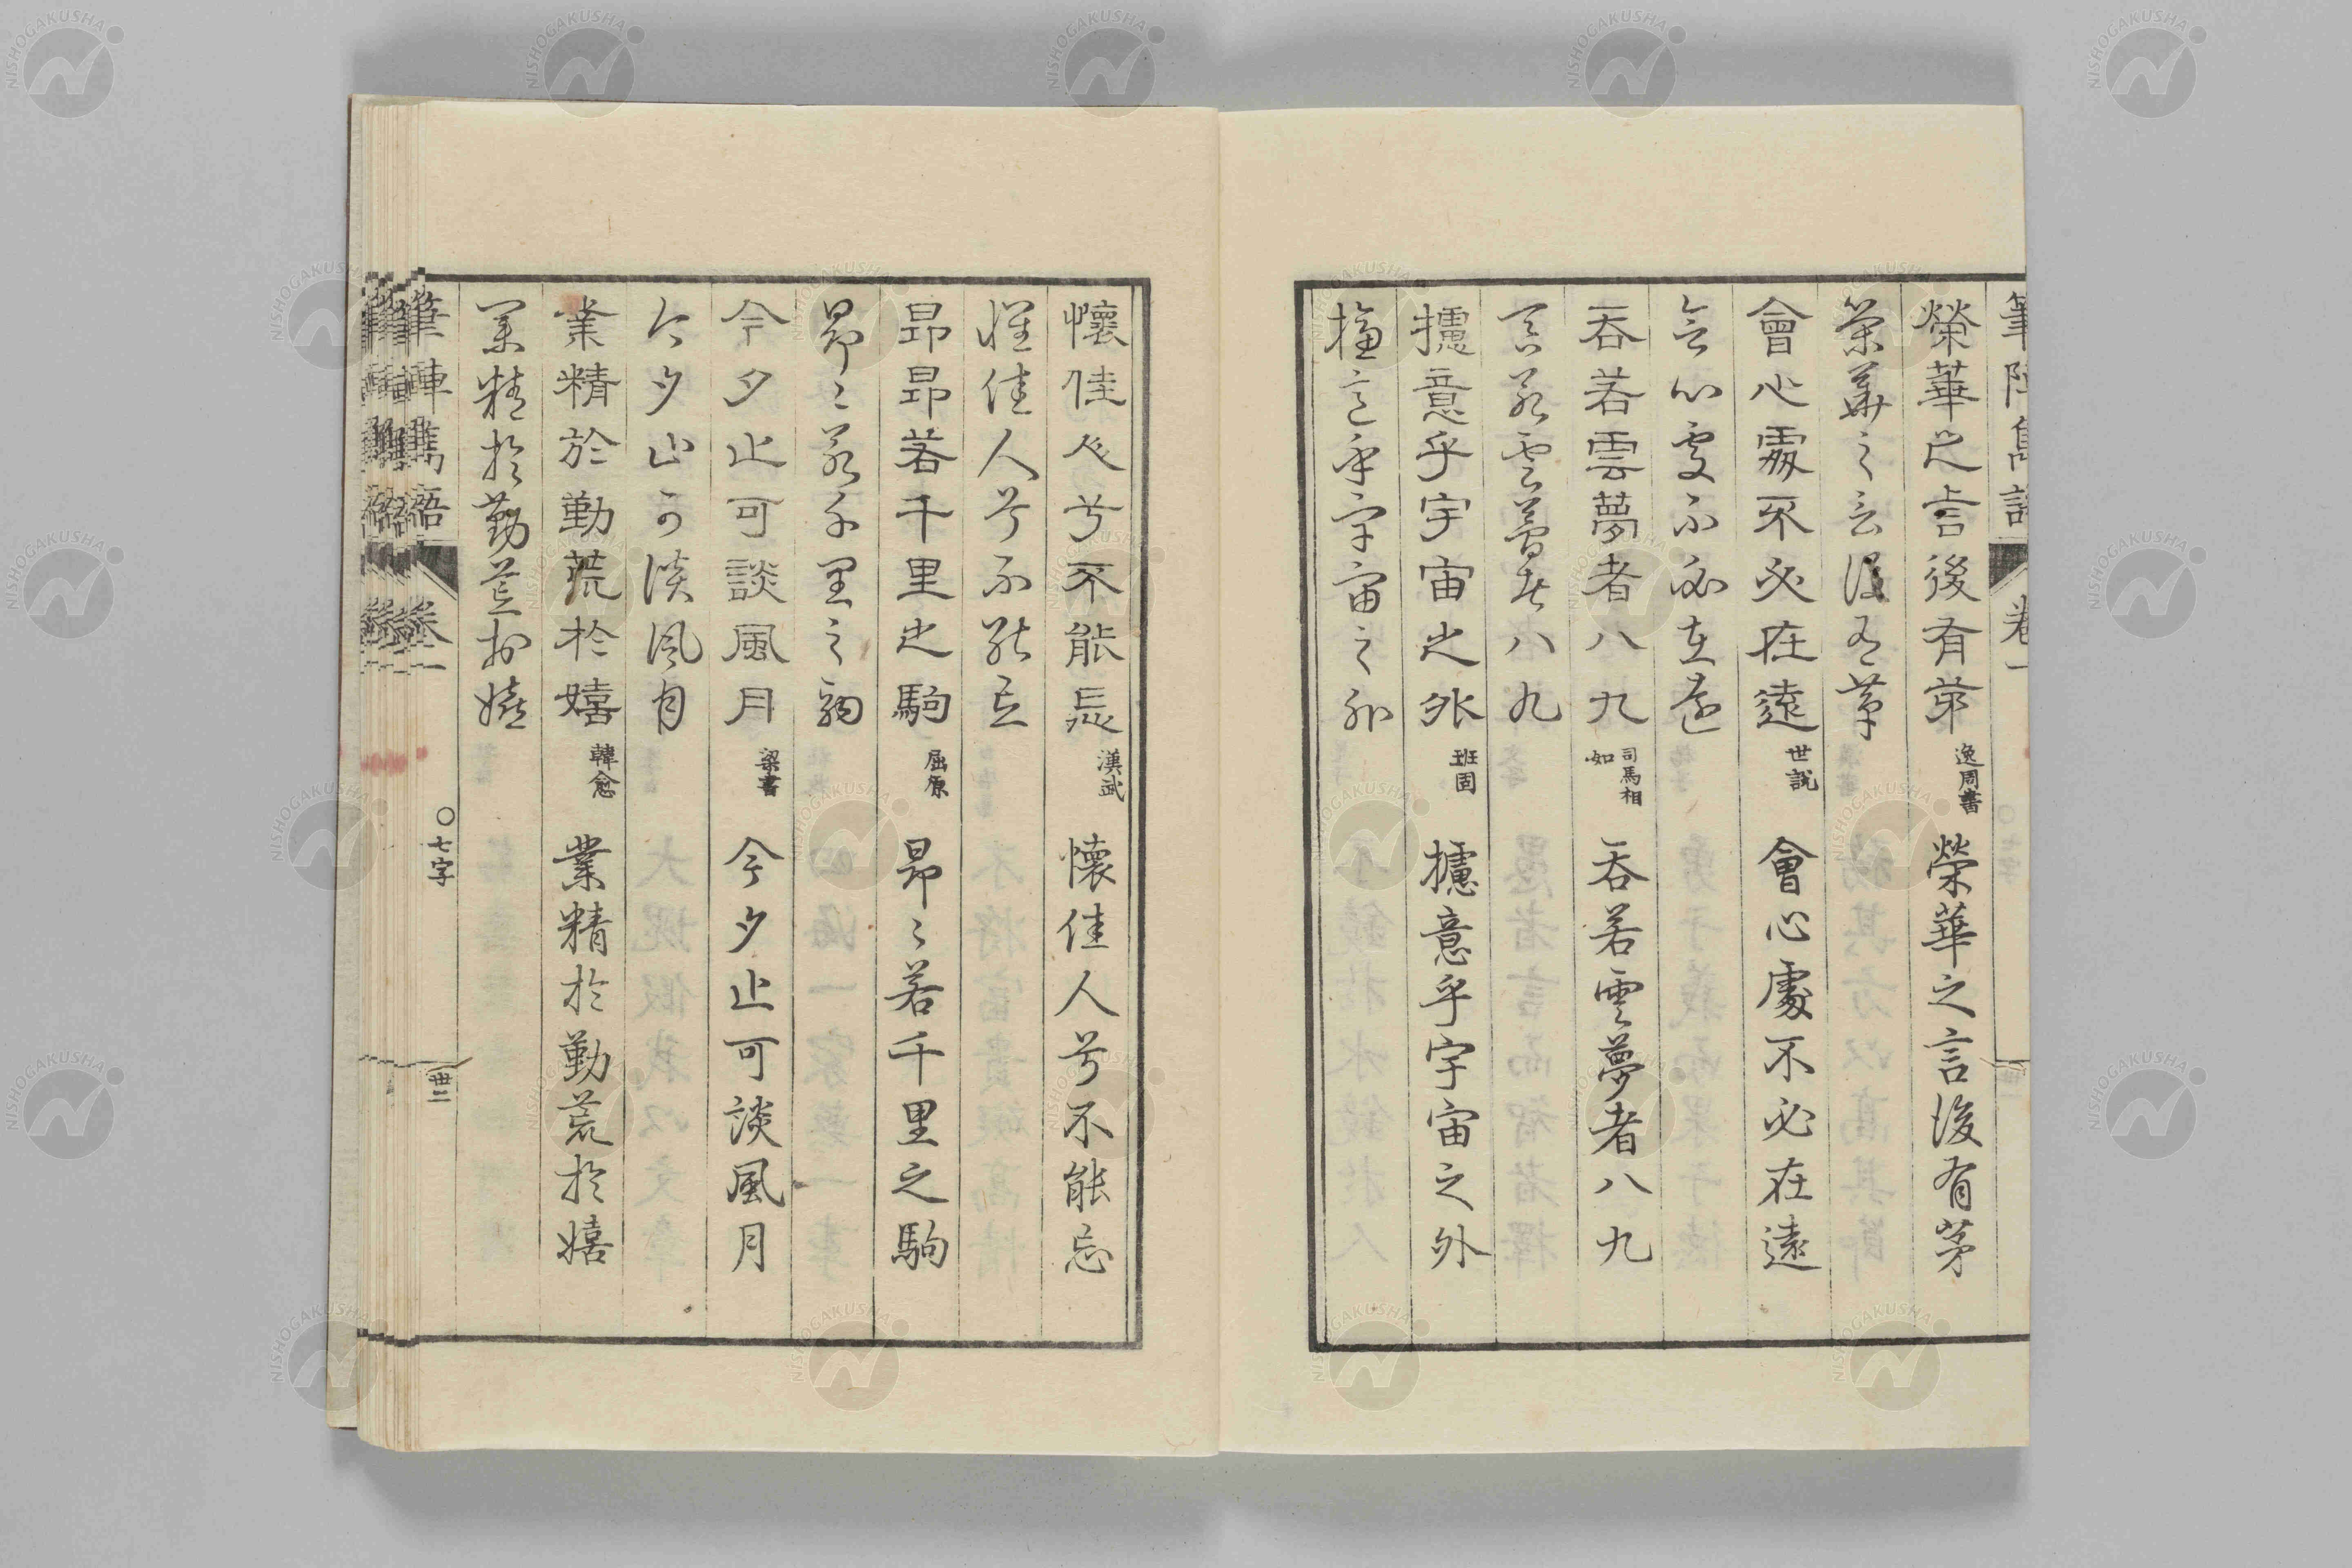 筆陣雋語 卷一
榮華之言後有茅 逸周書 榮華之言後有茅
榮華之言後有茅
會心處不必在遠 世説 會心處不必在遠
會心處不必在遠
吞若雲夢者八九 司馬相如 吞若雲夢者八九
吞若雲夢者八九
攄意乎宇宙之外 班固 攄意乎宇宙之外
攄意乎宇宙之外
懷佳人兮不能忘 漢武 懷佳人兮不能忘
懷佳人兮不能忘
昂昂若千里之駒 屈原 昂〻若千里之駒
昂〻若千里之駒
今夕止可談風月 梁書 今夕止可談風月
今夕止可談風月
業精於勤荒於嬉 韓愈 業精於勤荒於嬉
業精於勤荒於嬉
筆陣雋語 卷一 〇七字 丗二
NISHOGAKUSHA